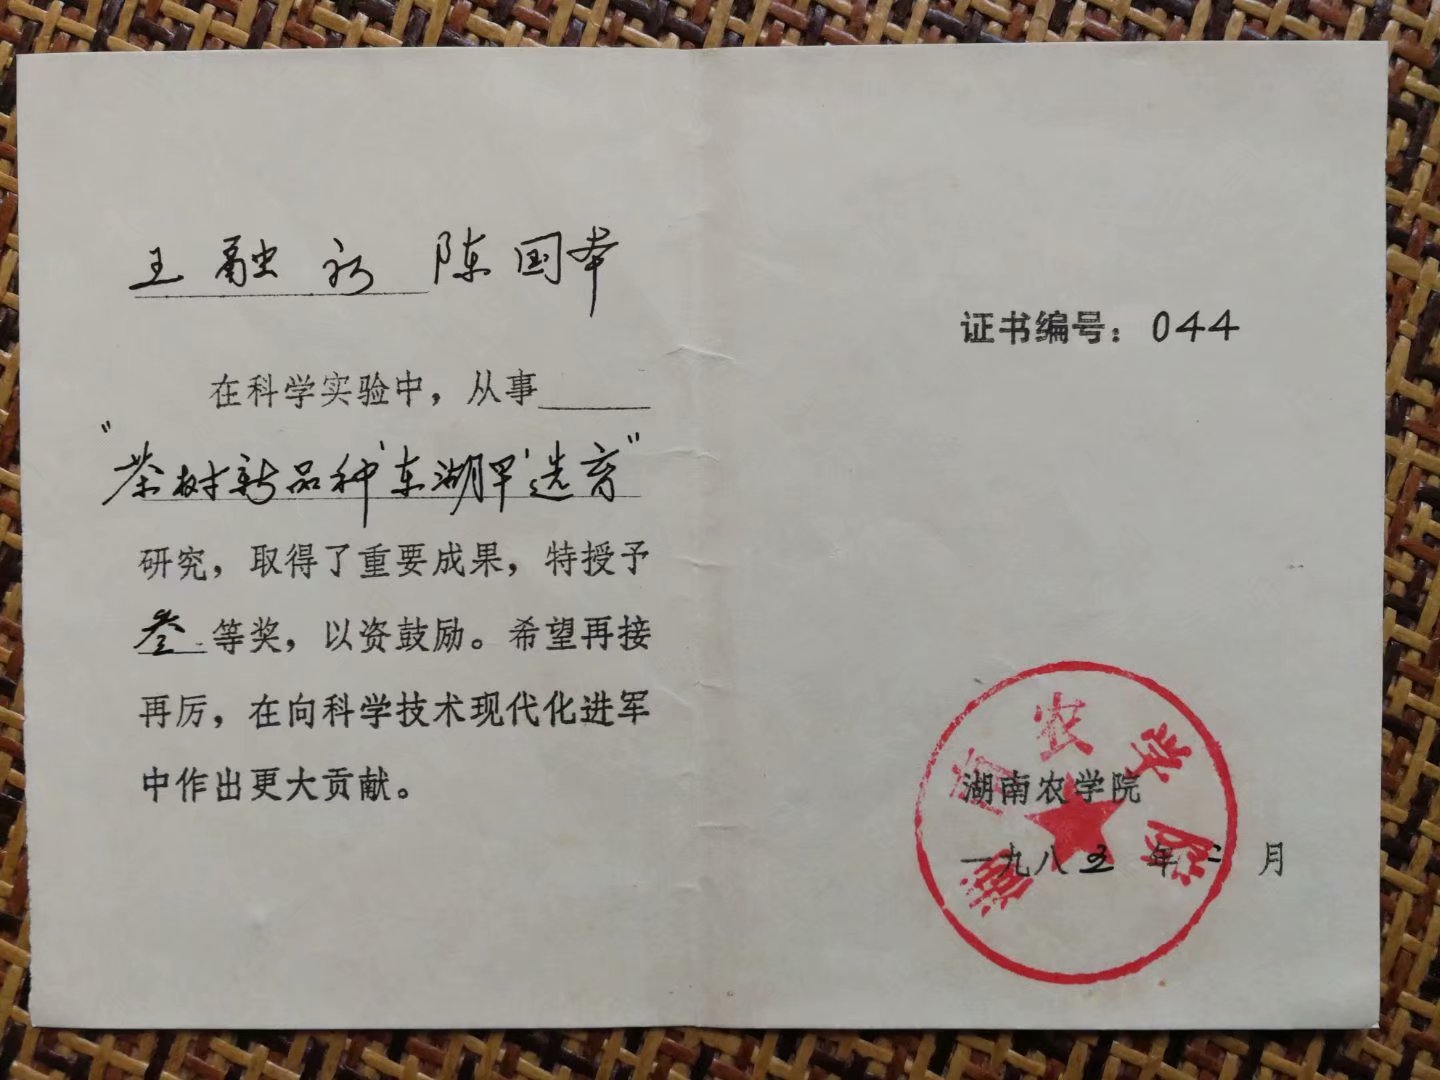 王融初 陈国本
在科学实验中，从事
“茶树新品种‘东湖早’选育”
研究，取得了重要成果，特授予
叁等奖，以资鼓励。希望再接
再厉，在向科学技术现代化进军
中作出更大贡献。
证书编号：044
湖南农学院
湖南农学院
一九八五年二月